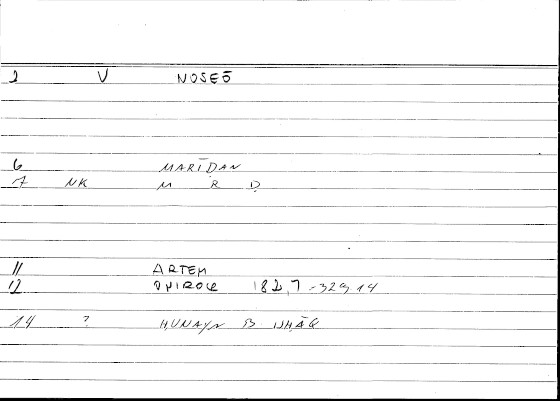 2 V NOSEŌ
6 MARĪḌAN
7 NK M R Ḍ
11 ARTEM
12 182,7-329,14
14 ? ḤUNAYN B ISḤĀQ